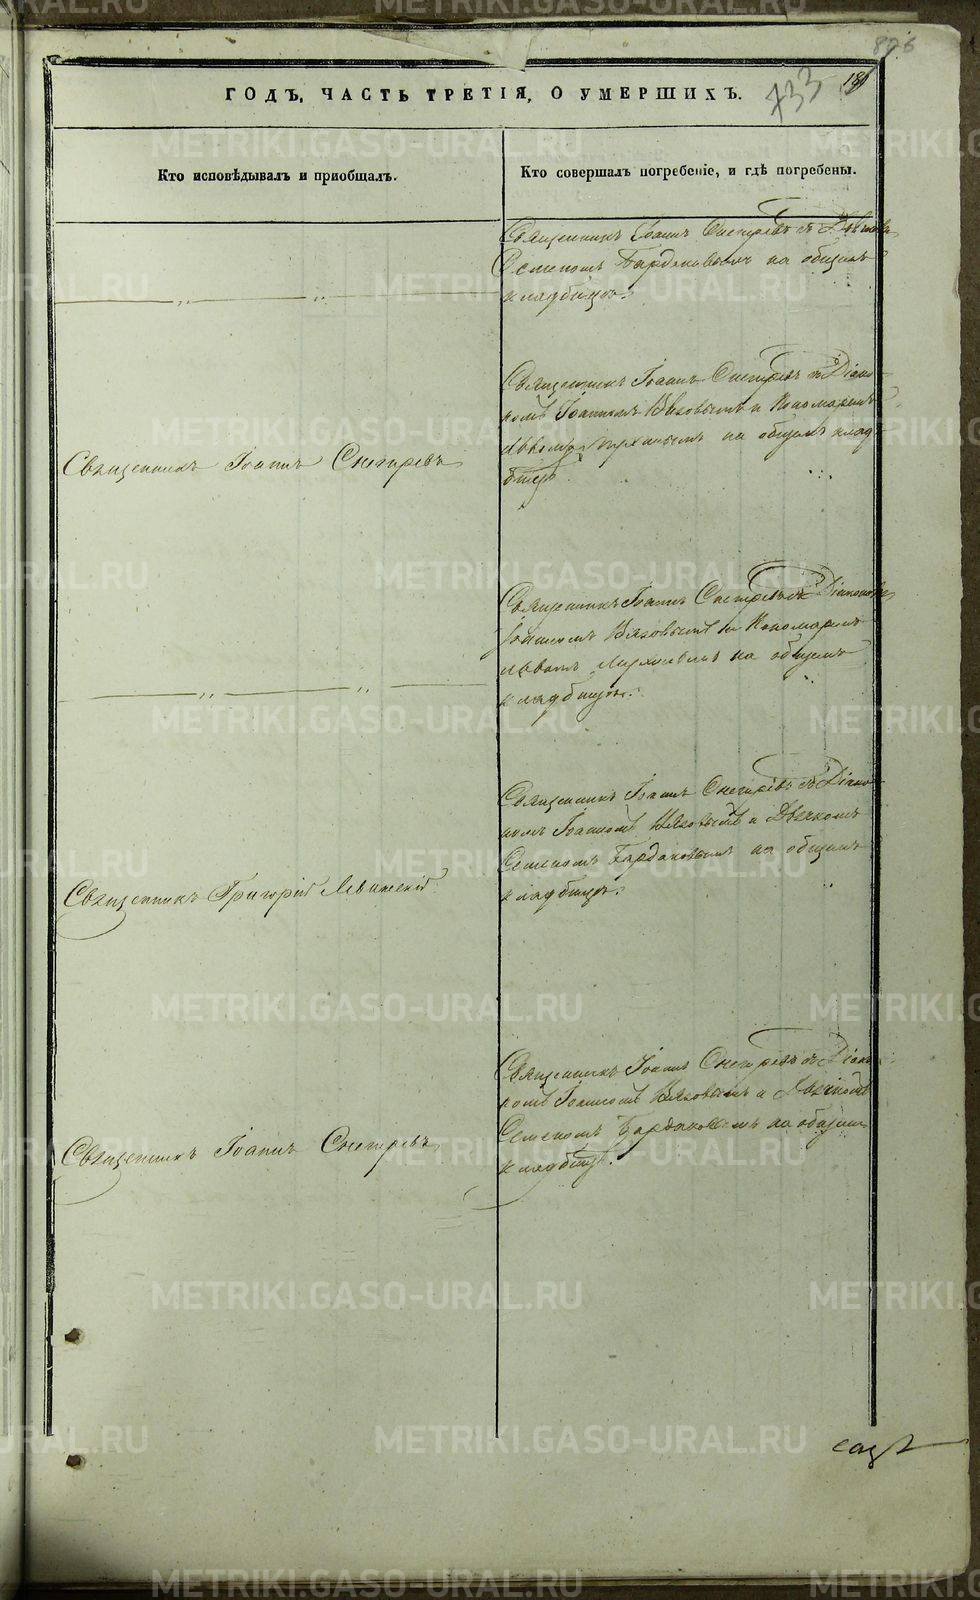 826
733
ГОДЪ, ЧАСТЬ ТРЕТІЯ, О УМЕРШИХЪ.
Кто исповѣдывалъ и приобщалъ.
Кто совершалъ погребеніе, и гдѣ погребены.
Священникъ Іоаннъ Снегиревъ съ
Семеномъ Бардаковымъ на общемъ
кладбищѣ.
Священникъ Іоаннъ Снегиревъ
Священникъ Іоаннъ Снегиревъ съ Діако-
номъ Іоанномъ Вяховымъ и Пономаремъ
на общемъ клад-
бищѣ
Священникъ Іоаннъ Снегиревъ съ Діакономъ
Іоанномъ Вяховымъ и Пономаремъ
на общемъ
кладбищѣ.
Священникъ Григорій Левитскій
Священникъ Іоаннъ Снегиревъ съ Діако-
номъ Іоанномъ Вяховымъ и Дьячкомъ
Семеномъ Бардаковымъ на общемъ
кладбищѣ.
Священникъ Іоаннъ Снегиревъ
Священникъ Іоаннъ Снегиревъ съ Діако-
номъ Іоанномъ Вяховымъ и Дьячкомъ
Семеномъ Бардаковымъ на общемъ
кладбищѣ.
METRIKI.GASO-URAL.RU